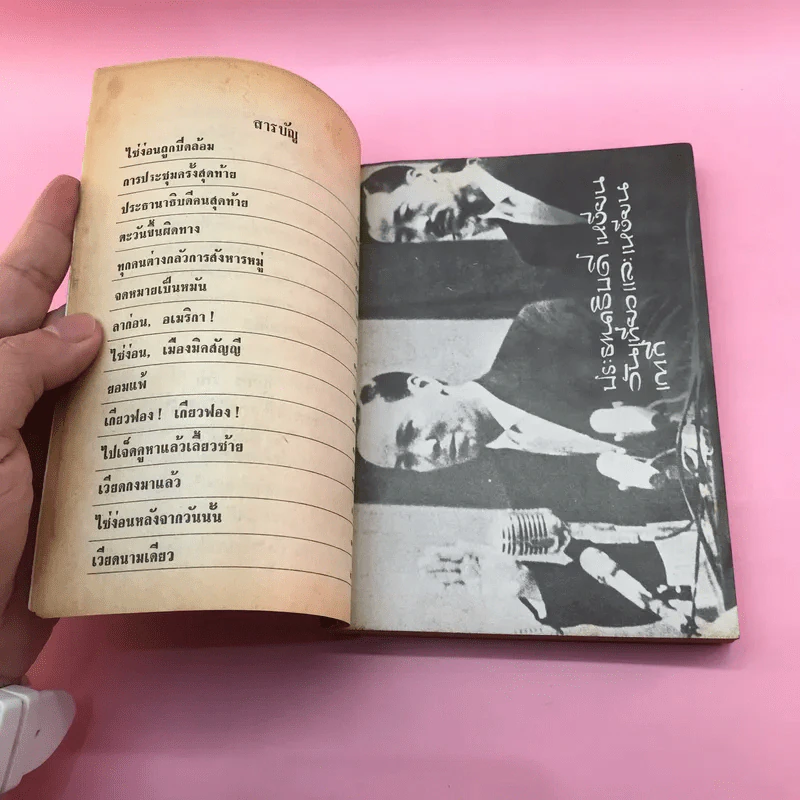 สารบัญ
ไซ่ง่อนถูกปิดล้อม
การประชุมครั้งสุดท้าย
ประธานาธิบดีคนสุดท้าย
ตะวันขึ้นผิดทาง
ทุกคนต่างกลัวการสังหารหมู่
จดหมายเป็นหมัน
ลาก่อน, อเมริกา !
ไซ่ง่อน, เมืองมิคสัญญี
ยอมแพ้
เกียวฟอง ! เกียวฟอง !
ไปเจ็ดคูหาแล้วเลี้ยวซ้าย
เวียดกงมาแล้ว
ไซ่ง่อนหลังจากวันนั้น
เวียดนามเดียว